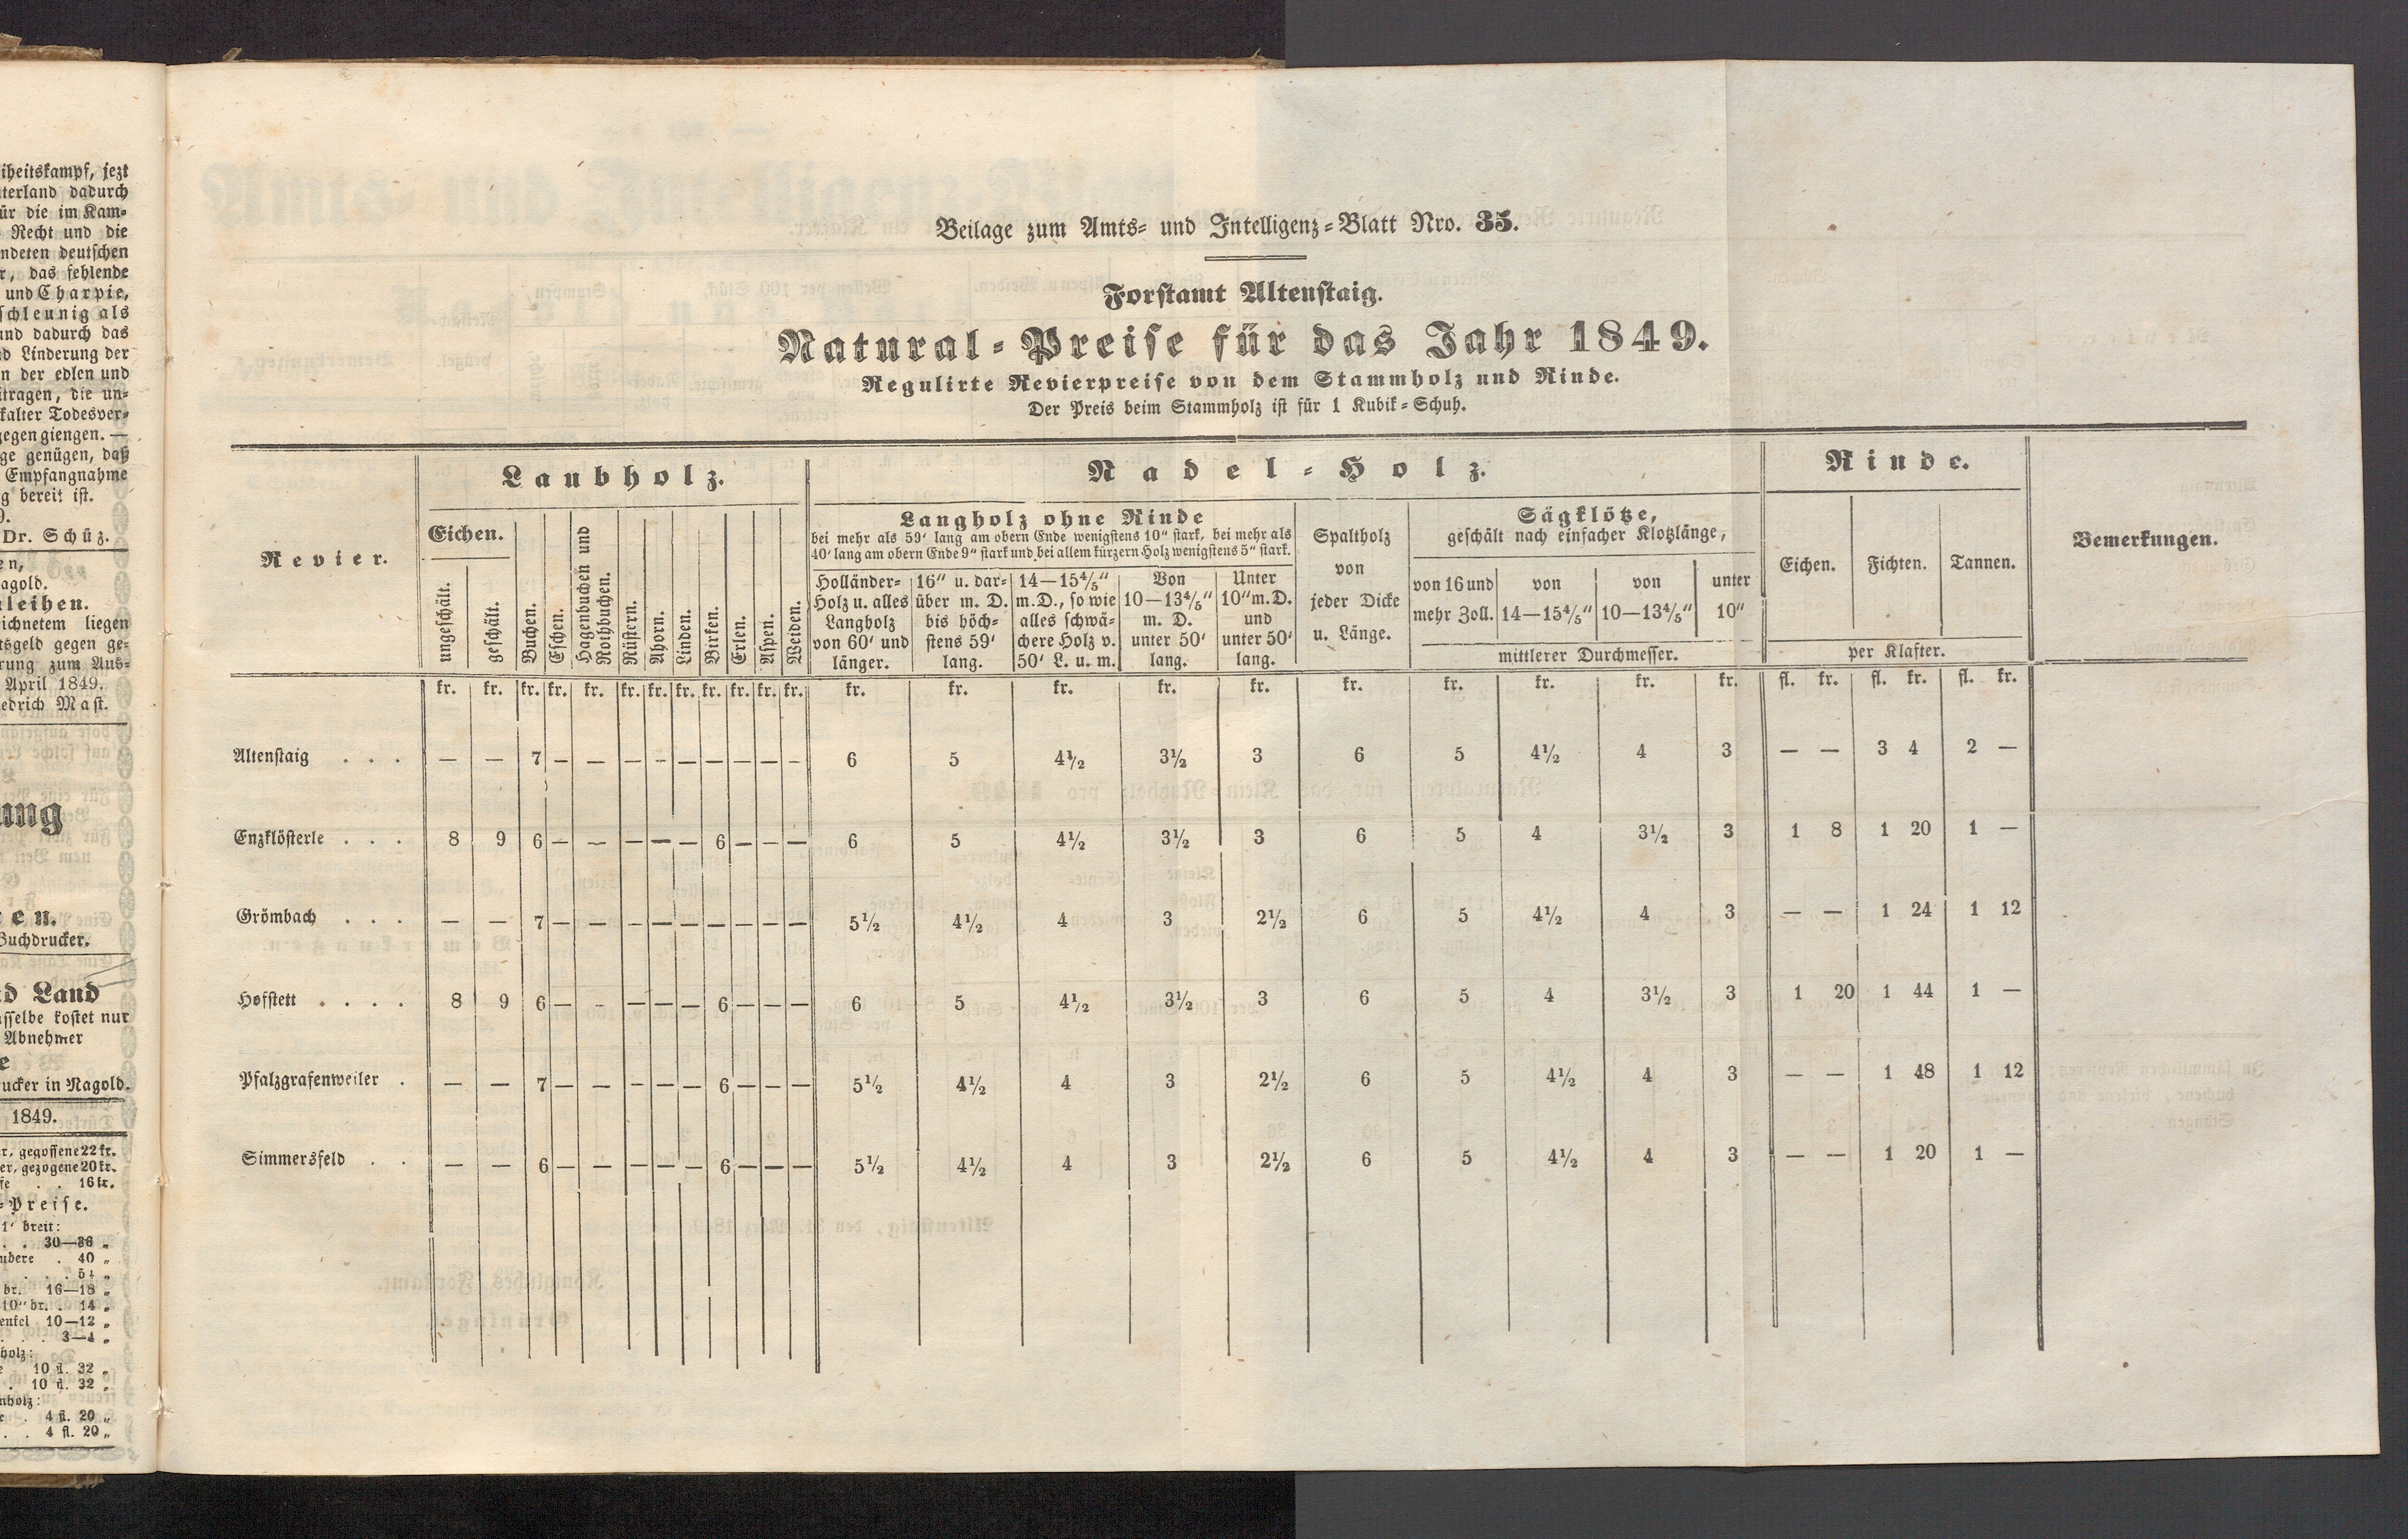 iheitskampf, jezt
terland dadurch
ür die im Kam-
Recht und die
ndeten deutschen
r, das fehlende
und Charpie,
schleunig als
und dadurch das
d Linderung der
n der edlen und
itragen, die un-
kalter Todesver-
gegen giengen. —
ge genügen, daß
Empfangnahme
g bereit ist.
9.
Dr. Schüz.
en,
agold.
leihen.
ichnetem liegen
tsgeld gegen ge-
rung zum Aus-
April 1849.
edrich Mast.
ung
en.
Buchdrucker.
d Land
sselbe kostet nur
Abnehmer
e
ucker in Nagold.
1849.
r, gegossene 22 kr.
er, gezogene 20 kr.
fe . . 16 kr.
=Preise.
1' breit:
. . 30—36 „
ubere . 40 „
. . . 54 „
br. 16—18 „
10" br. . 14 „
enkel 10—12 „
. . 3—4 „
holz:
e 10 fl. 32 „
. 10 fl. 32 „
nholz:
e . 4 fl. 20 „
. . 4 fl. 20 „
Beilage zum Amts- und Intelligenz-Blatt Nro. 35.
Forstamt Altenstaig.
Natural-Preise für das Jahr 1849.
Regulirte Revierpreise von dem Stammholz und Rinde.
Der Preis beim Stammholz ist für 1 Kubik-Schuh.
Revier.
Laubholz.
Eichen.
ungeschält.
geschält.
Buchen.
Eschen.
Hagenbuchen und
Rothbuchen.
Rüstern.
Ahorn.
Linden.
Birken.
Erlen.
Aspen.
Weiden.
Nadel-Holz.
Langholz ohne Rinde
bei mehr als 59' lang am obern Ende wenigstens 10" stark, bei mehr als
40' lang am obern Ende 9" stark und bei allem kürzern Holz wenigstens 5" stark.
Holländer-
Holz u. alles
Langholz
von 60' und
länger.
16" u. dar-
über m. D.
bis höch-
stens 59'
lang.
14—15⅘"
m. D., so wie
alles schwä-
chere Holz v.
50' L. u. m.
Von
10—13⅘"
m. D.
unter 50'
lang.
Unter
10" m. D.
und
unter 50'
lang.
Spaltholz
von
jeder Dicke
u. Länge.
Sägklötze,
geschält nach einfacher Klotzlänge,
von 16 und
mehr Zoll.
von
14—15⅘"
von
10—13⅘"
unter
10"
mittlerer Durchmesser.
Rinde.
Eichen.
Fichten.
Tannen.
per Klafter.
Bemerkungen.
kr. kr. kr. kr. kr. kr. kr. kr. kr. kr. kr. kr. kr. kr. kr. kr. kr. kr. kr. kr. kr. kr. fl. kr. fl. kr. fl. kr.
Altenstaig . . . — — 7 — — — — — — — — — 6 5 4½ 3½ 3 6 5 4½ 4 3 — — 3 4 2 —
Enzklösterle . . . 8 9 6 — — — — — 6 — — — 6 5 4½ 3½ 3 6 5 4 3½ 3 1 8 1 20 1 —
Grömbach . . . — — 7 — — — — — — — — — 5½ 4½ 4 3 2½ 6 5 4½ 4 3 — — 1 24 1 12
Hofstett . . . . 8 9 6 — — — — — 6 — — — 6 5 4½ 3½ 3 6 5 4 3½ 3 1 20 1 44 1 —
Pfalzgrafenweiler . — — 7 — — — — — 6 — — — 5½ 4½ 4 3 2½ 6 5 4½ 4 3 — — 1 48 1 12
Simmersfeld . . — — 6 — — — — — 6 — — — 5½ 4½ 4 3 2½ 6 5 4½ 4 3 — — 1 20 1 —